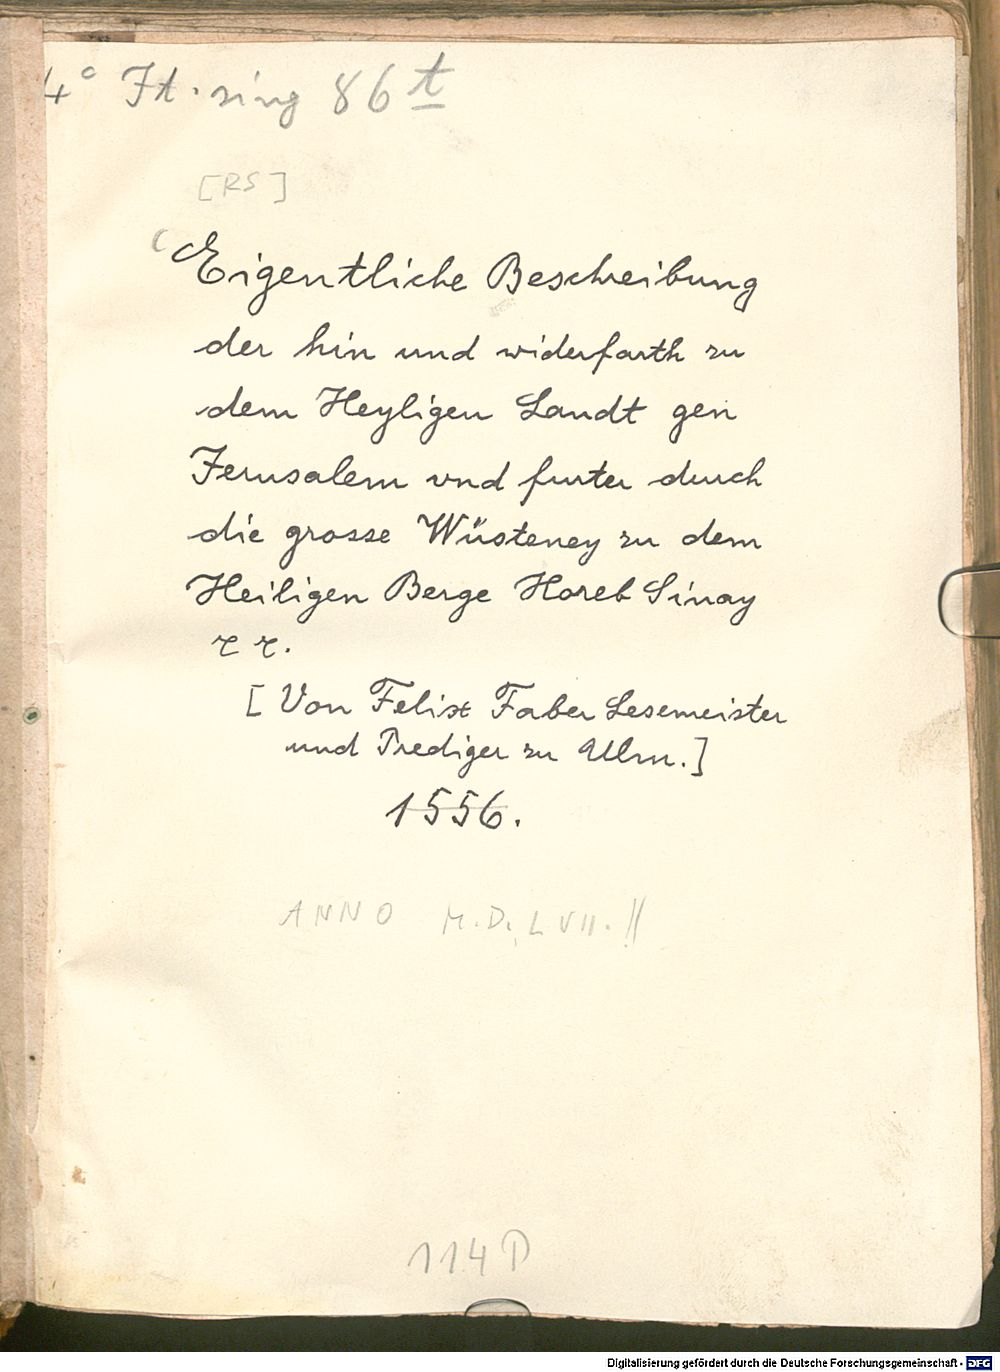 4° It. sing 86 t
[RS]
Eigentliche Beschreibung
der hin und widerfarth zu
dem Heyligen Landt gen
Jerusalem vnd furter durch
die grosse Wüsteney zu dem
Heiligen Berge Horeb Sinay
ꝛc ꝛc.
[Von Felix Faber Lesemeister
und Prediger zu Ulm.]
1556.
ANNO M.D.LVII.
114 P
Digitalisierung gefördert durch die Deutsche Forschungsgemeinschaft - DFG